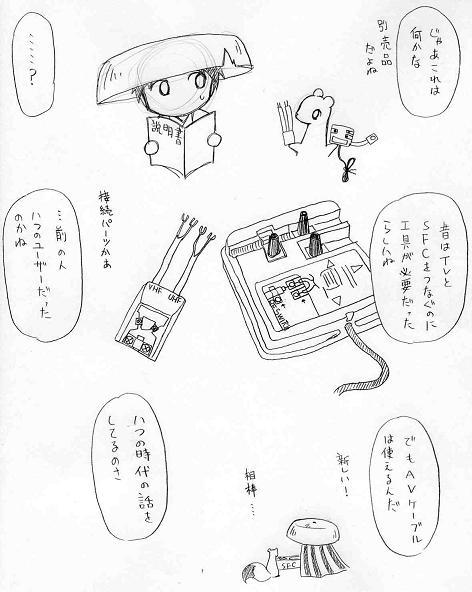 じゃあこれは
何かな
別売品
だよね
説明書
……?
昔はTVと
SFCをつなぐのに
工具が必要だった
らしいね
接続パーツかぁ
VHF UHF
…前の人
いつのユーザーだった
のかね
でもAVケーブル
は使えるんだ
新しい!
相棒…
SFC
いつの時代の話を
してるのさ